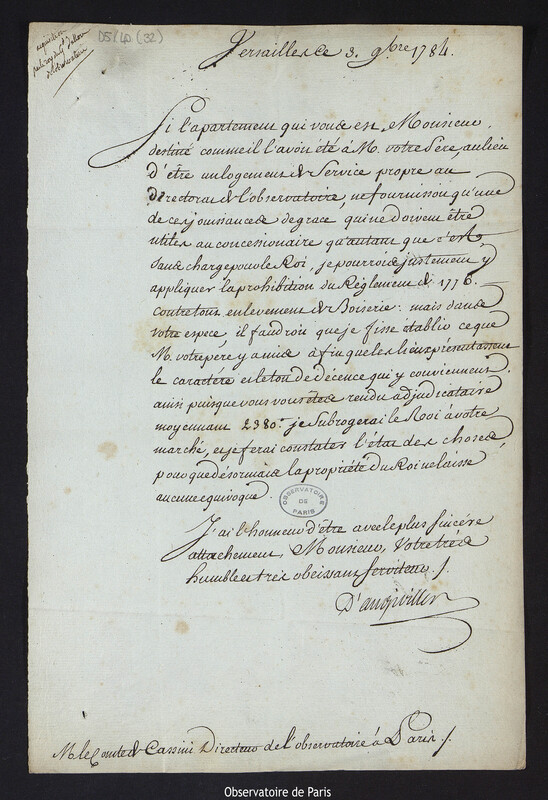 D5/40 (32)
Versailles ce 3. 9bre 1784.
Si l'apartement qui vous est, Monsieur,
destiné comme il l'avoit été à M. votre Pere, au lieu
d'être un logement de Service propre au
Directorat de l'observatoire, ne fournissoit qu'une
de ces jouissances de grace qui ne doivent être
utiles au concessionaire qu'autant que c'est
sans charge pour le Roi, je pourrois justement y
appliquer la prohibition du Réglement de 1776.
contre tout enlevement de Boiserie: mais dans
votre espece, il faudroit que je fisse établir ce que
M. votre pere y a mis à fin que les lieux présentassent
le caractére et le ton de décence qui y conviennent
ainsi puisque vous vous êtes rendu adjudicataire
moyennant 2380.# je Subrogerai le Roi à votre
marché, et je ferai constater l'état des choses,
pour que désormais la propriété du Roi ne laisse
aucune equivoque.
OBSERVATOIRE
DE
PARIS
J'ai l'honneur d'être avec le plus sincére
attachement, Monsieur, Votre très
humble et très obeissant serviteur ./.
D'angiviller
M. le Comte de Cassini Directeur de l'observatoire à Paris ./.
Observatoire de Paris